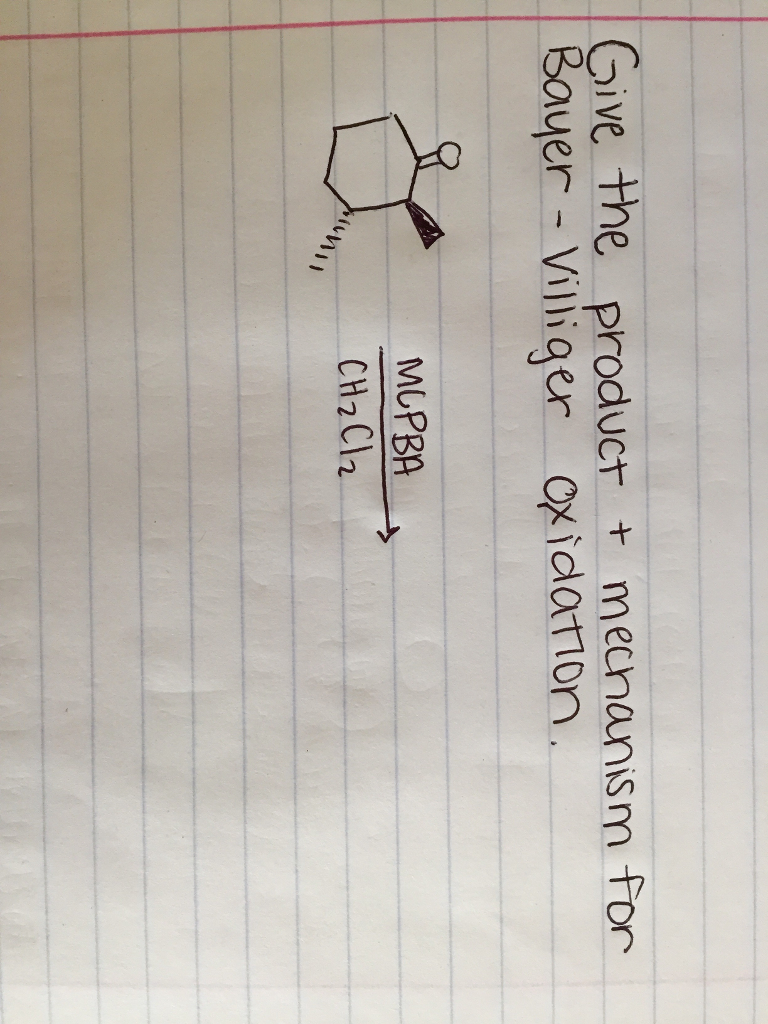 Give the product + mechanism for
Bayer - Villiger oxidation.
O
MCPBA
CH₂Cl₂